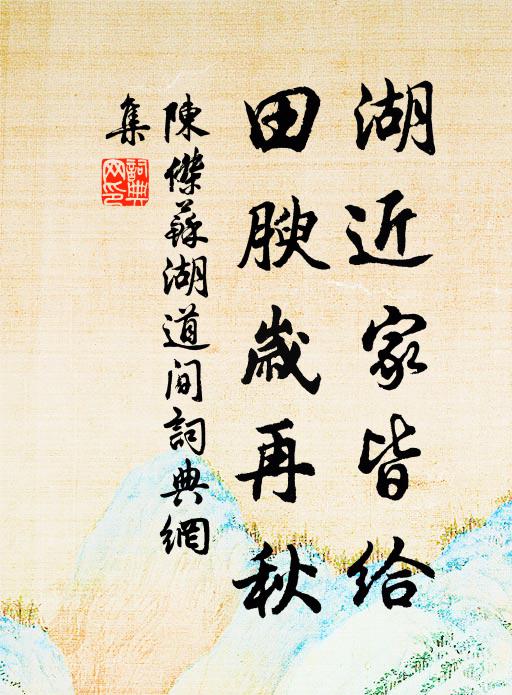 湖近家皆給
田腴歲再秋
陳傑蘇湖道间詞典網
集
詞典網印